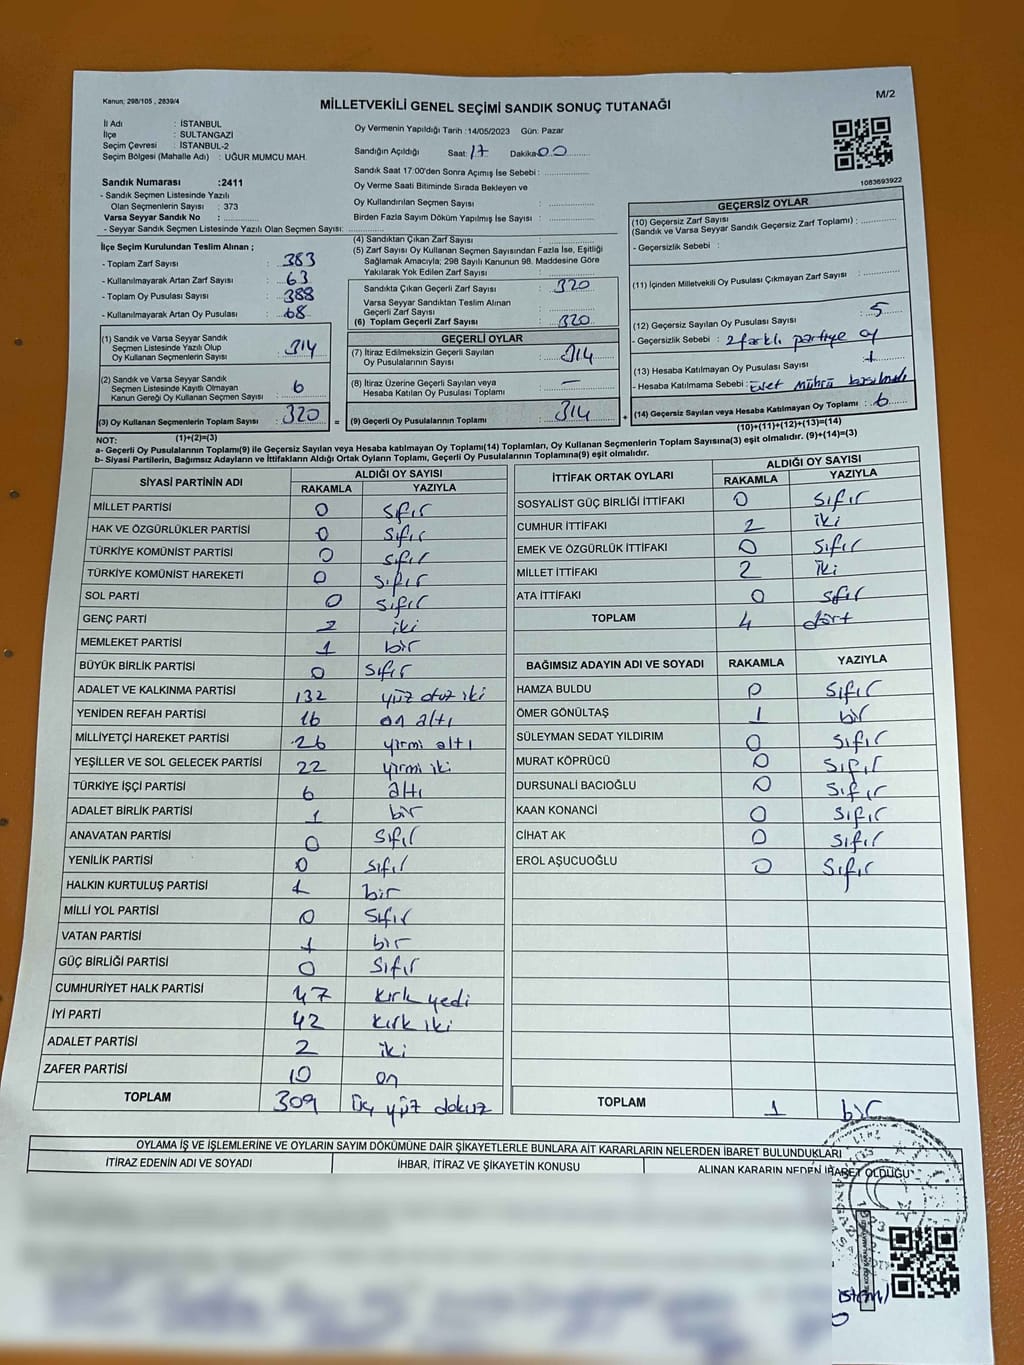 Kanun; 298/105 , 2839/4
M/2
MİLLETVEKİLİ GENEL SEÇİMİ SANDIK SONUÇ TUTANAĞI
İl Adı : İSTANBUL
İlçe : SULTANGAZİ
Seçim Çevresi : İSTANBUL-2
Seçim Bölgesi (Mahalle Adı) : UĞUR MUMCU MAH.
Oy Vermenin Yapıldığı Tarih :14/05/2023 Gün: Pazar
Sandığın Açıldığı Saat: 17 Dakika 00
Sandık Saat 17:00'den Sonra Açımış İse Sebebi :
Oy Verme Saati Bitiminde Sırada Bekleyen ve
Oy Kullandırılan Seçmen Sayısı :
Birden Fazla Sayım Döküm Yapılmış İse Sayısı :
1083693922
Sandık Numarası :2411
- Sandık Seçmen Listesinde Yazılı
Olan Seçmenlerin Sayısı : 373
Varsa Seyyar Sandık No :
- Seyyar Sandık Seçmen Listesinde Yazılı Olan Seçmen Sayısı:
İlçe Seçim Kurulundan Teslim Alınan ;
- Toplam Zarf Sayısı : 383
- Kullanılmayarak Artan Zarf Sayısı : 63
- Toplam Oy Pusulası Sayısı : 388
- Kullanılmayarak Artan Oy Pusulası : 68
(1) Sandık ve Varsa Seyyar Sandık
Seçmen Listesinde Yazılı Olup
Oy Kullanan Seçmenlerin Sayısı : 314
(2) Sandık ve Varsa Seyyar Sandık
Seçmen Listesinde Kayıtlı Olmayan
Kanun Gereği Oy Kullanan Seçmen Sayısı : 6
(3) Oy Kullanan Seçmenlerin Toplam Sayısı : 320
(1)+(2)=(3)
(4) Sandıktan Çıkan Zarf Sayısı :
(5) Zarf Sayısı Oy Kullanan Seçmen Sayısından Fazla İse, Eşitliği
Sağlamak Amacıyla; 298 Sayılı Kanunun 98. Maddesine Göre
Yakılarak Yok Edilen Zarf Sayısı :
Sandıkta Çıkan Geçerli Zarf Sayısı : 320
Varsa Seyyar Sandıktan Teslim Alınan
Geçerli Zarf Sayısı :
(6) Toplam Geçerli Zarf Sayısı : 320
GEÇERLİ OYLAR
(7) İtiraz Edilmeksizin Geçerli Sayılan
Oy Pusulalarının Sayısı : 314
(8) İtiraz Üzerine Geçerli Sayılan veya
Hesaba Katılan Oy Pusulaları Toplamı : —
= (9) Geçerli Oy Pusulalarının Toplamı : 314 +
GEÇERSİZ OYLAR
(10) Geçersiz Zarf Sayısı
(Sandık ve Varsa Seyyar Sandık Geçersiz Zarf Toplamı) :
- Geçersizlik Sebebi :
(11) İçinden Milletvekili Oy Pusulası Çıkmayan Zarf Sayısı :
(12) Geçersiz Sayılan Oy Pusulası Sayısı : 5
- Geçersizlik Sebebi : 2 farklı partiye oy
(13) Hesaba Katılmayan Oy Pusulası Sayısı : 1
- Hesaba Katılmama Sebebi : Evet mührü basılmadı
(14) Geçersiz Sayılan veya Hesaba Katılmayan Oy Toplamı : 6
(10)+(11)+(12)+(13)=(14)
NOT:
a- Geçerli Oy Pusulalarının Toplamı(9) ile Geçersiz Sayılan veya Hesaba katılmayan Oy Toplamı(14) Toplamları, Oy Kullanan Seçmenlerin Toplam Sayısına(3) eşit olmalıdır. (9)+(14)=(3)
b- Siyasi Partilerin, Bağımsız Adayların ve İttifakların Aldığı Oyların Toplamı, Geçerli Oy Pusulalarının Toplamına(9) eşit olmalıdır.
SİYASİ PARTİNİN ADI ALDIĞI OY SAYISI
RAKAMLA YAZIYLA
MİLLET PARTİSİ 0 sıfır
HAK VE ÖZGÜRLÜKLER PARTİSİ 0 sıfır
TÜRKİYE KOMÜNİST PARTİSİ 0 sıfır
TÜRKİYE KOMÜNİST HAREKETİ 0 sıfır
SOL PARTİ 0 sıfır
GENÇ PARTİ 2 iki
MEMLEKET PARTİSİ 1 bir
BÜYÜK BİRLİK PARTİSİ 0 sıfır
ADALET VE KALKINMA PARTİSİ 132 yüz otuz iki
YENİDEN REFAH PARTİSİ 16 on altı
MİLLİYETÇİ HAREKET PARTİSİ 26 yirmi altı
YEŞİLLER VE SOL GELECEK PARTİSİ 22 yirmi iki
TÜRKİYE İŞÇİ PARTİSİ 6 altı
ADALET BİRLİK PARTİSİ 1 bir
ANAVATAN PARTİSİ 0 sıfır
YENİLİK PARTİSİ 0 sıfır
HALKIN KURTULUŞ PARTİSİ 1 bir
MİLLİ YOL PARTİSİ 0 sıfır
VATAN PARTİSİ 1 bir
GÜÇ BİRLİĞİ PARTİSİ 0 sıfır
CUMHURİYET HALK PARTİSİ 47 kırk yedi
İYİ PARTİ 42 kırk iki
ADALET PARTİSİ 2 iki
ZAFER PARTİSİ 10 on
TOPLAM 309 üç yüz dokuz
İTTİFAK ORTAK OYLARI ALDIĞI OY SAYISI
RAKAMLA YAZIYLA
SOSYALİST GÜÇ BİRLİĞİ İTTİFAKI 0 sıfır
CUMHUR İTTİFAKI 2 iki
EMEK VE ÖZGÜRLÜK İTTİFAKI 0 sıfır
MİLLET İTTİFAKI 2 iki
ATA İTTİFAKI 0 sfır
TOPLAM 4 dört
BAĞIMSIZ ADAYIN ADI VE SOYADI RAKAMLA YAZIYLA
HAMZA BULDU 0 sıfır
ÖMER GÖNÜLTAŞ 1 bir
SÜLEYMAN SEDAT YILDIRIM 0 sıfır
MURAT KÖPRÜCÜ 0 sıfır
DURSUNALİ BACIOĞLU 0 sıfır
KAAN KONANCİ 0 sıfır
CİHAT AK 0 sıfır
EROL AŞUCUOĞLU 0 sıfır
TOPLAM 1 bir
OYLAMA İŞ VE İŞLEMLERİNE VE OYLARIN SAYIM DÖKÜMÜNE DAİR ŞİKAYETLERLE BUNLARA AİT KARARLARIN NELERDEN İBARET BULUNDUKLARI
İTİRAZ EDENİN ADI VE SOYADI İHBAR, İTİRAZ VE ŞİKAYETİN KONUSU ALINAN KARARIN NEDEN İBARET OLDUĞU